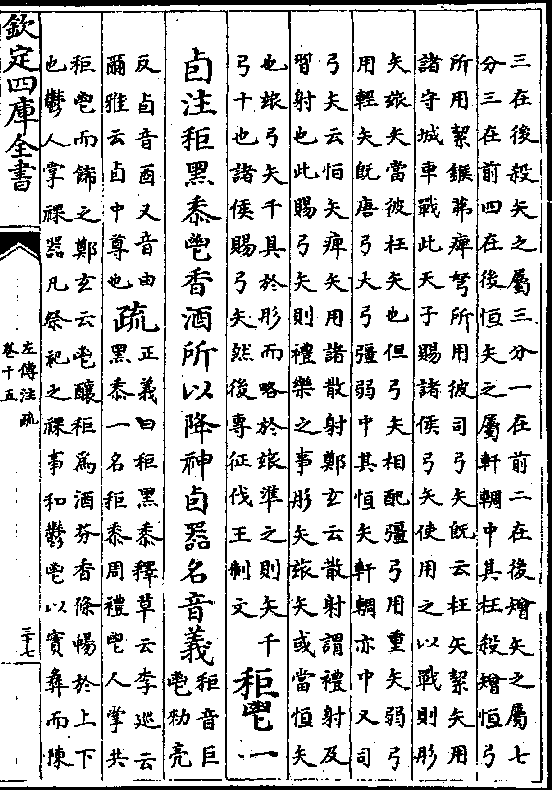 三在後殺矢之屬三分一在前二在後矰矢之屬七
分三在前四在後恒矢之屬軒輖中其枉殺矰恒弓
所用絜鍭茀痺弩所用彼司弓矢旣云枉矢絜矢用
諸守城車戰此天子賜諸侯弓矢使用之以戰則彤
矢玈矢當彼枉矢也但弓矢相配彊弓用重矢弱弓
用輕矢旣唐弓大弓彊弱中其恒矢軒輖亦中又司
弓矢云恒矢痺矢用諸散射鄭玄云散射謂禮射及
習射也此賜弓矢則禮樂之事彤矢玈矢或當恒矢
也玈弓矢千具於彤而略於玈準之則矢千
弓十也諸侯賜弓矢然後專征伐王制文
秬鬯一
卣注秬黑黍鬯香酒所以降神卣器名音義
秬音巨
鬯勑亮
反卣音酉又音由
爾雅云卣中尊也
疏
正義曰秬黑黍釋草云李巡云
黑黍一名秬黍周禮鬯人掌共
秬鬯而飾之鄭玄云鬯釀秬爲酒芬香條暢於上下
也鬱人掌祼器凡祭祀之祼事和鬱鬯以實彝而陳
欽定四庫全書
左傳注疏
卷十五
三十七